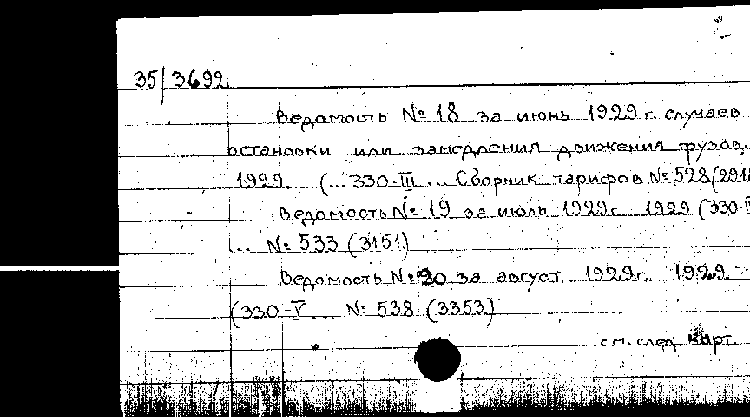 35/3692
Ведомость № 18 за июнь 1929 г. случаев
остановки или замедления движения грузов.
1929. (... 330-III ... Сборник тарифов № 528 (2918
Ведомость № 19 за июль 1929 г. 1929 (330-
... № 533 (3151)
Ведомость № 20 за август 1929 г. 1929.-
(330-V ... № 538 (3353)
см. след. карт.